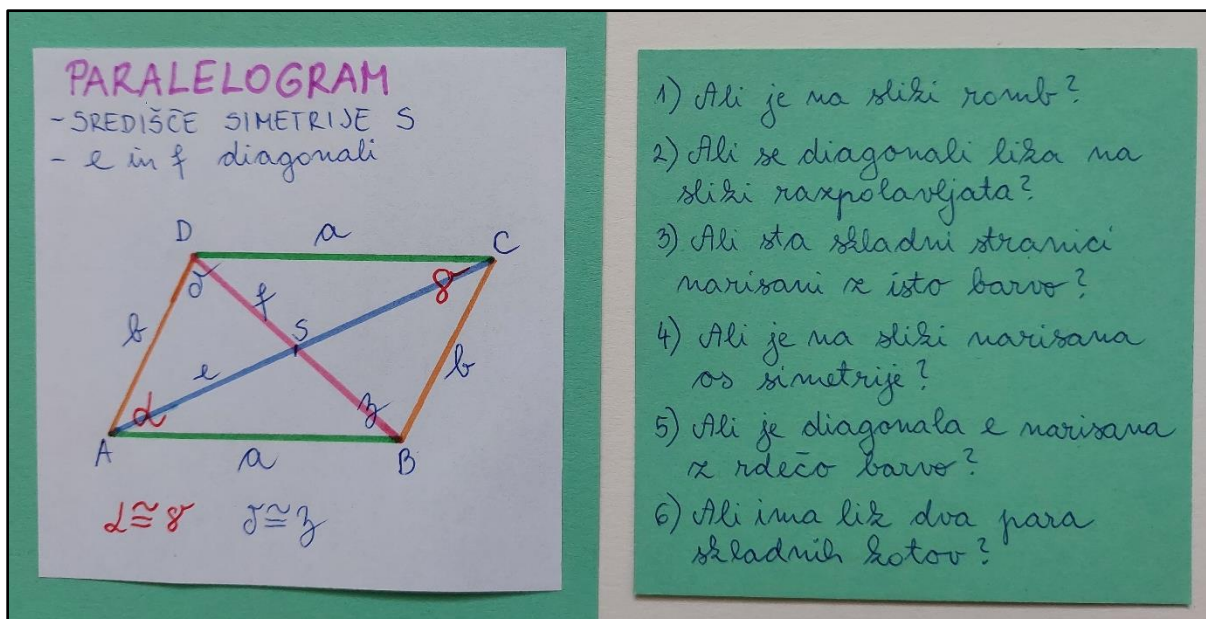 PARALELOGRAM
- SREDIŠČE SIMETRIJE S
- e in f diagonali
D
a
C
δ
γ
f
b
S
e
b
α
β
A
a
B
α ≅ γ δ ≅ β
1) Ali je na sliki romb?
2) Ali se diagonali lika na
sliki razpolavljata?
3) Ali sta skladni stranici
narisani z isto barvo?
4) Ali je na sliki narisana
os simetrije?
5) Ali je diagonala e narisana
z rdečo barvo?
6) Ali ima lik dva para
skladnih kotov?